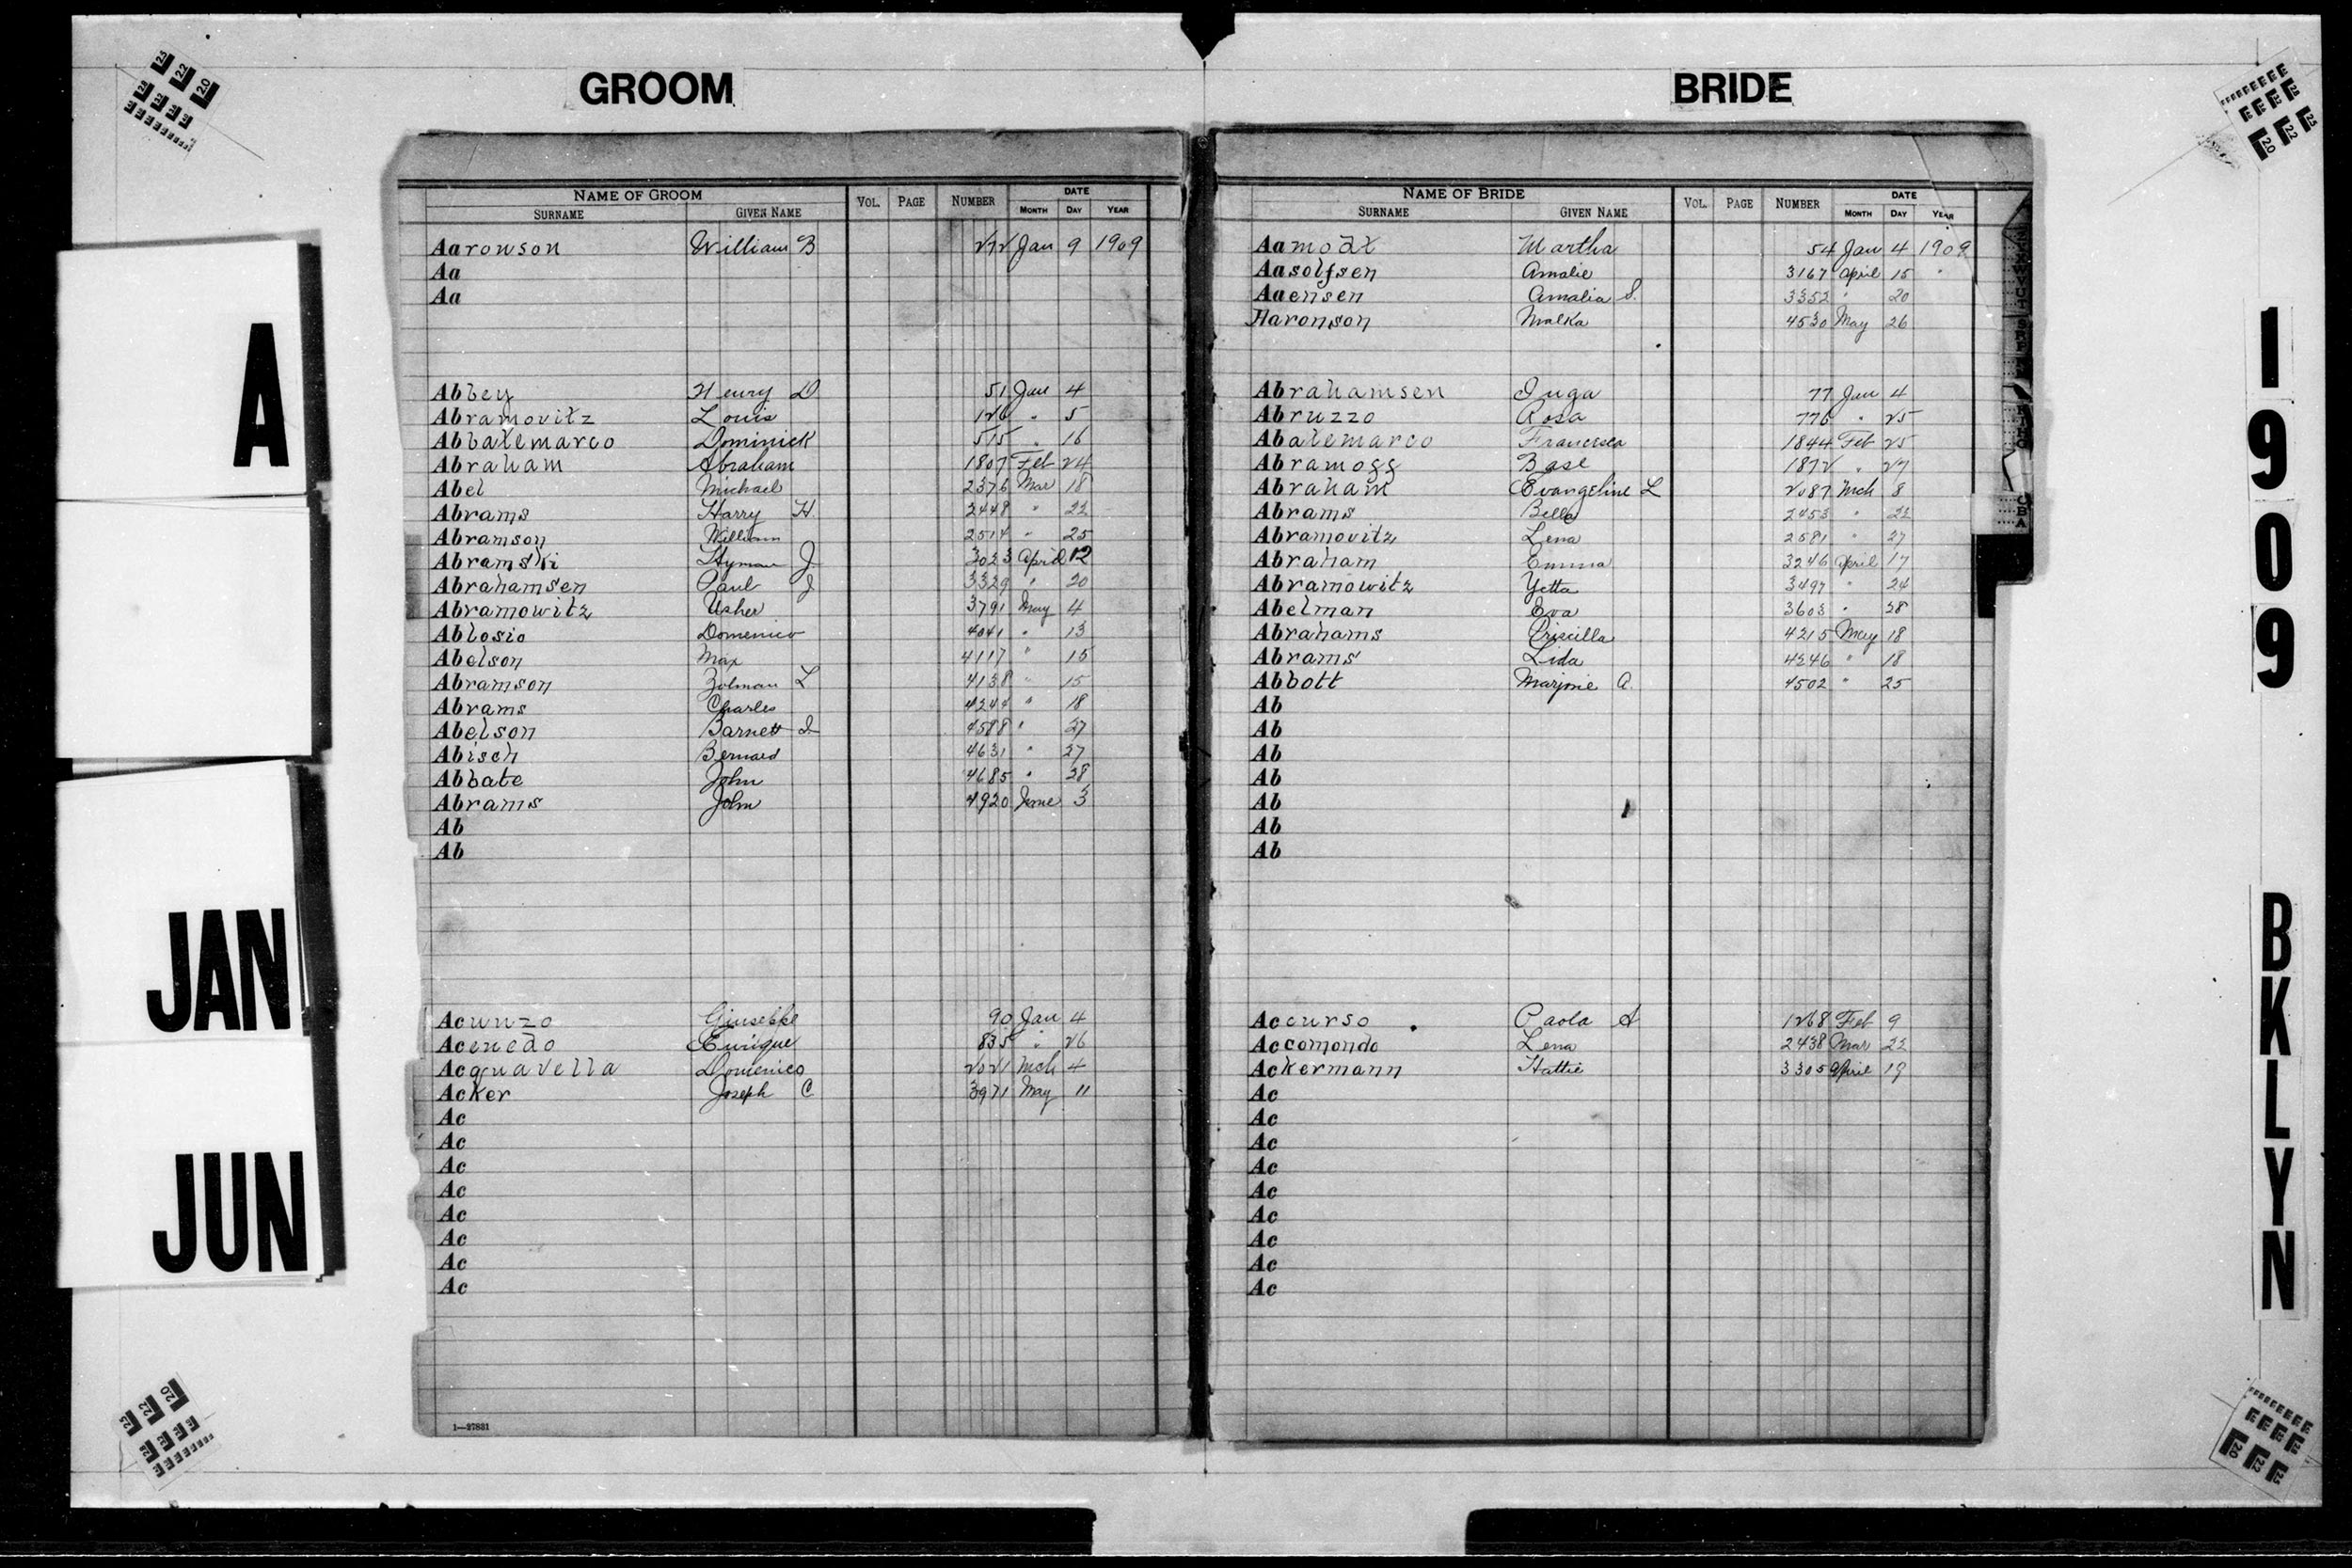 GROOM
BRIDE
A
JAN
JUN
1909
BKLYN
NAME OF GROOM VOL. PAGE NUMBER DATE
SURNAME GIVEN NAME MONTH DAY YEAR
Aaronson William B 272 Jan 9 1909
Aa
Aa
Abbey Henry D 51 Jan 4
Abramovitz Louis 126 " 5
Abbatemarco Dominick 515 " 16
Abraham Abraham 1807 Feb 24
Abel Michael 2376 Mar 18
Abrams Harry H. 2448 " 22
Abramson William 2514 " 25
Abramski Hyman J. 3023 April 12
Abrahamsen Paul J 3329 " 20
Abramowitz Usher 3791 May 4
Ablosio Domenico 4041 " 13
Abelson Max 4117 " 15
Abramson Zolman L 4138 " 15
Abrams Charles 4244 " 18
Abelson Barnett I 4588 " 27
Abisch Bernard 4631 " 27
Abbate John 4685 " 28
Abrams John 4920 June 3
Ab
Ab
Acunzo Giuseppe 90 Jan 4
Acenedo Enrique 835 " 26
Acquavella Domenico 2021 Mch 4
Acker Joseph C 3971 May 11
Ac
Ac
Ac
Ac
Ac
Ac
Ac
Ac
1—37831
NAME OF BRIDE VOL. PAGE NUMBER DATE
SURNAME GIVEN NAME MONTH DAY YEAR
Aamodt Martha 54 Jan 4 1909
Aasolfsen Amalie 3167 April 15 "
Aaensen Amalia S. 3352 " 20
Aaronson Malka 4530 May 26
Abrahamsen Inga 77 Jan 4
Abruzzo Rosa 776 " 25
Abatemarco Francesca 1844 Feb 25
Abramoss Base 1872 " 27
Abraham Evangeline L 2087 Mch 8
Abrams Bella 2453 " 22
Abramovitz Lena 2581 " 27
Abraham Emma 3246 April 17
Abramowitz Yetta 3497 " 24
Abelman Eva 3603 " 28
Abrahams Priscilla 4215 May 18
Abrams Lida 4246 " 18
Abbott Marjorie A. 4502 " 25
Ab
Ab
Ab
Ab
Ab
Ab
Ab
Accurso Paola A 1268 Feb 9
Accomondo Lena 2438 Mar 22
Ackermann Hattie 3305 April 19
Ac
Ac
Ac
Ac
Ac
Ac
Ac
Ac
Ac